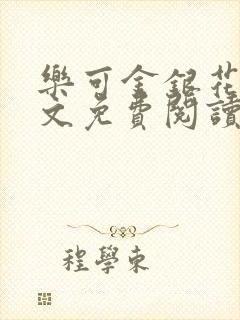 樂可金銀花
文免費閱讀
程學東